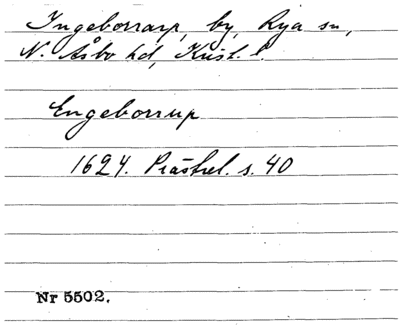 Ingeborrarp, by, Rya sn,
N. Åsbo hd, Krist. l.
Engeborrup
1624. Prästrel. s. 40
Nr 5502.